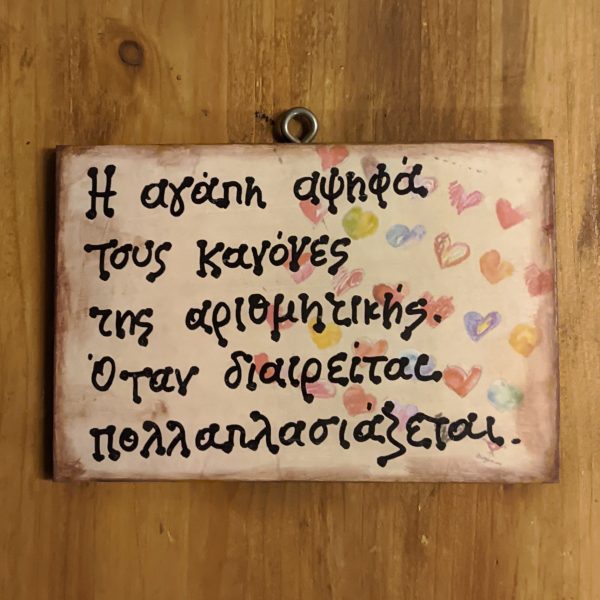 Η αγάπη αψηφά
τους κανόνες
της αριθμητικής.
Όταν διαιρείται
πολλαπλασιάζεται.